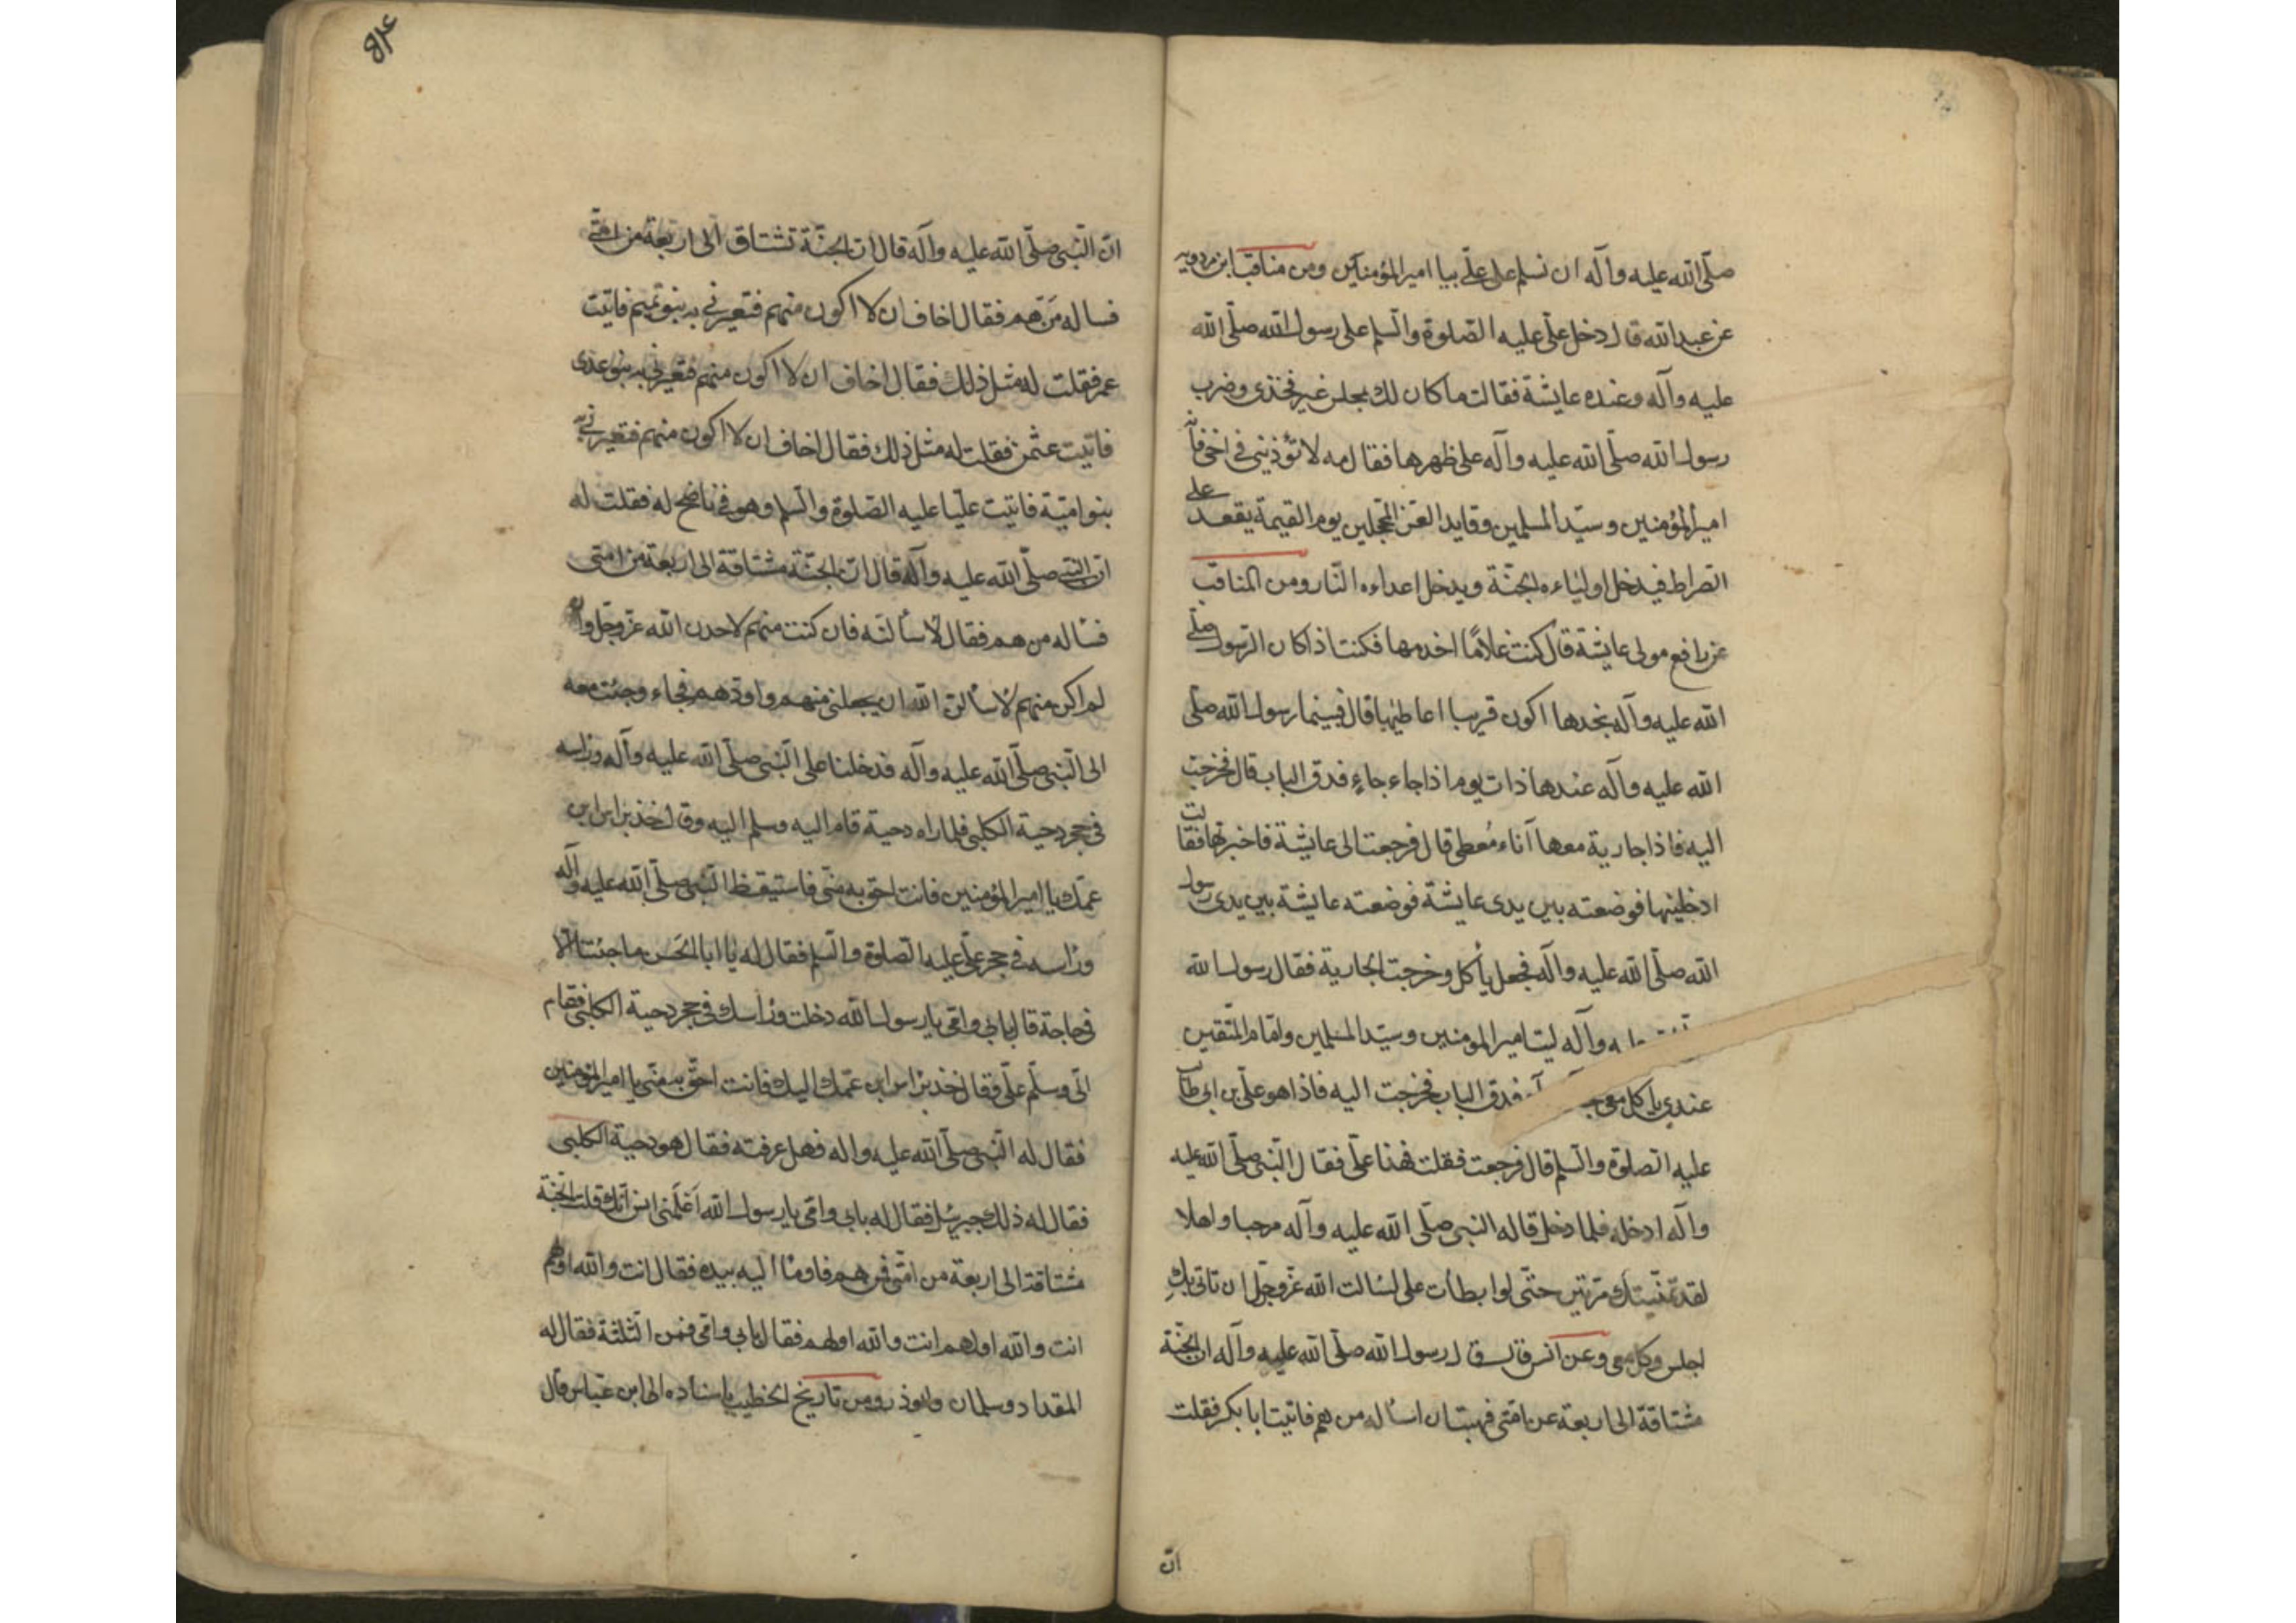 صلّى الله عليه وآله ان نسلم على علّي بيا امير المؤمنين ومن مناقب ابن مردويه
عن عبد الله قال دخل علّي عليه الصّلوة والسّلم على رسول الله صلّى الله
عليه وآله وعنده عايشة فقالت ما كان لك مجلس غير فخذى وضرب
رسول الله صلّى الله عليه وآله على ظهرها فقال مه لا تؤذينى فى اخى فانّه
امير المؤمنين وسيّد المسلمين وقايد الغرّ المحجلين يوم القيمة يقعد على
الصراط فيدخل اولياءه الجنّة ويدخل اعداءه النّار ومن المناقب
عن رافع مولى عايشة قال كنت غلامًا اخدمها فكنت اذا كان الرّسول صلّى
الله عليه وآله عندها اكون قريبا اعاطيها قال فبينما رسول الله صلّى
الله عليه وآله عندها ذات يوم اذا جاء جاءٍ فدق الباب قال فخرجت
اليه فاذا جارية معها آناء مُغطى قال فرجعت الى عايشة فاخبرتها فقالت
ادخليها فوضعته بين يدى عايشة فوضعته عايشة بين يدى رسول
الله صلّى الله عليه وآله فجعل يأكل وخرجت الجارية فقال رسول الله
عليه وآله ليت امير المومنين وسيّد المسلمين وامام المتّقين
عندى يا كل معى فدق الباب فخرجت اليه فاذا هو علّي بن ابى طالب
عليه الصلوة والسّلم قال فرجعت فقلت هذا علّي فقال النّبى صلّى الله عليه
وآله ادخله فلما دخل قال له النبى صلّى الله عليه وآله مرحبا واهلا
لقد تمنّيتك مرّتين حتّى لو ابطأت على لسالت الله عزّ وجلّ ان تاتى بك
اجلس وكل معى وعن انس قال رسول الله صلّى الله عليه وآله ان الجنّة
مشتاقة الى اربعة عن امّتى فهبت ان اسأله من هم فاتيت ابا بكر فقلت
انّ
انّ النّبى صلّى الله عليه وآله قال انّ الجنّة تشتاق الى اربعة من امّتى
فساله مَن هم فقال اخاف ان لا اكون منهم فتعيرنى به بنو تميم فاتيت
عمر فقلت له مثل ذلك فقال اخاف ان لا اكون منهم فتعيرنى به بنو عدى
فاتيت عثمن فقلت له مثل ذلك فقال اخاف ان لا اكون منهم فتعيرنى به
بنو اميّة فاتيت عليّا عليه الصّلوة والسّلم وهو فى ناضح له فقلت له
انّ النّبى صلّى الله عليه وآله قال انّ الجنّة مشتاقة الى اربعة من امتى
فسأله من هم فقال لاسألنّه فان كنت منهم لاحدن الله عزّ وجلّ وان
لم اكن منهم لاسألن الله ان يجعلنى منهم واودّهم فجاء وجئت معه
الى النّبى صلّى الله عليه وآله فدخلنا على النّبى صلّى الله عليه وآله وراسه
فى حجر دحية الكلبى فلما راه دحية قام اليه وسلم اليه وقال خذ براس ابن
عمّك يا امير المؤمنين فانت احقّ به منّى فاستيقظ النّبى صلّى الله عليه وآله
وراسه فى حجر علّي عليه الصلوة والسّلم فقال له يا ابا الحَسن ما جئت الّا
فى حاجة قال بابى وامّى يا رسول الله دخلت وراسك فى حجر دحية الكلبى فقام
الىّ وسلّم علّى وقال خذ براس ابن عمّك اليك فانت احقّ به منّى يا امير المؤمنين
فقال له النّبى صلّى الله عليه واله فهل عرفته فقال هو دحية الكلبى
فقال له ذلك جبرئيل فقال له بابى وامّى يا رسول الله اَعْلَمَنى انس انّك قلت الجنّة
مشتاقة الى اربعة من امّتى فمن هم فاومأ اليه بيده فقال انت والله اولهم
انت والله اولهم انت والله اولهم فقال بابى وامّى فمن الثلثة فقال له
المقداد وسلمان وابوذر ومن تاريخ الخطيب باسناده الى ابن عبّاس قال